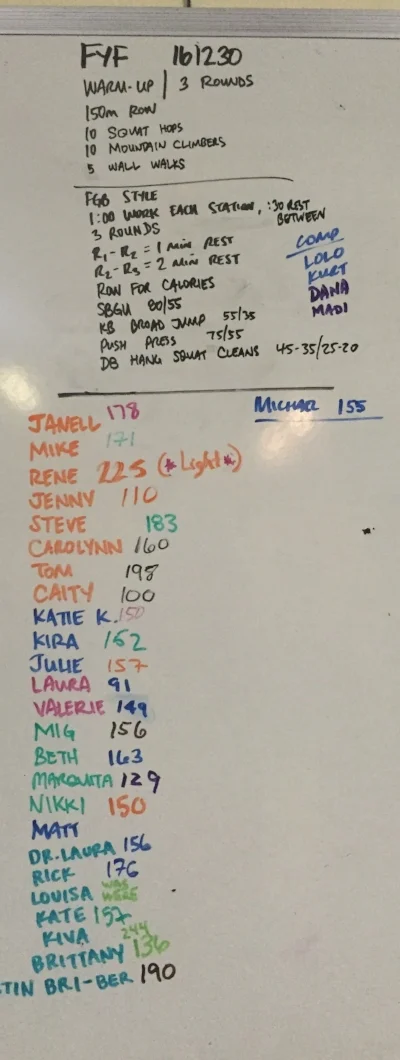 FYF 161230
WARM-UP | 3 ROUNDS
150m ROW
10 SQUAT HOPS
10 MOUNTAIN CLIMBERS
5 WALL WALKS
FGB STYLE
1:00 WORK EACH STATION, :30 REST BETWEEN
3 ROUNDS
R1-R2 = 1 MIN REST
R2-R3 = 2 MIN REST
ROW FOR CALORIES
SBGU 80/55
KB BROAD JUMP 55/35
PUSH PRESS 75/55
DB HANG SQUAT CLEANS 45-35/25-20
COMP
LOLO
KURT
DANA
MADI
MICHAEL 155
JANELL 178
MIKE 171
RENE 225 (*Light*)
JENNY 110
STEVE 183
CAROLYNN 160
TOM 198
CAITY 100
KATIE K. 150
KIRA 162
JULIE 157
LAURA 91
VALERIE 149
MIG 156
BETH 163
MARQUITA 129
NIKKI 150
MATT
DR. LAURA 156
RICK 176
LOUISA WAS HERE
KATE 157
KIVA 244
BRITTANY 136
TIN BRI-BER 190